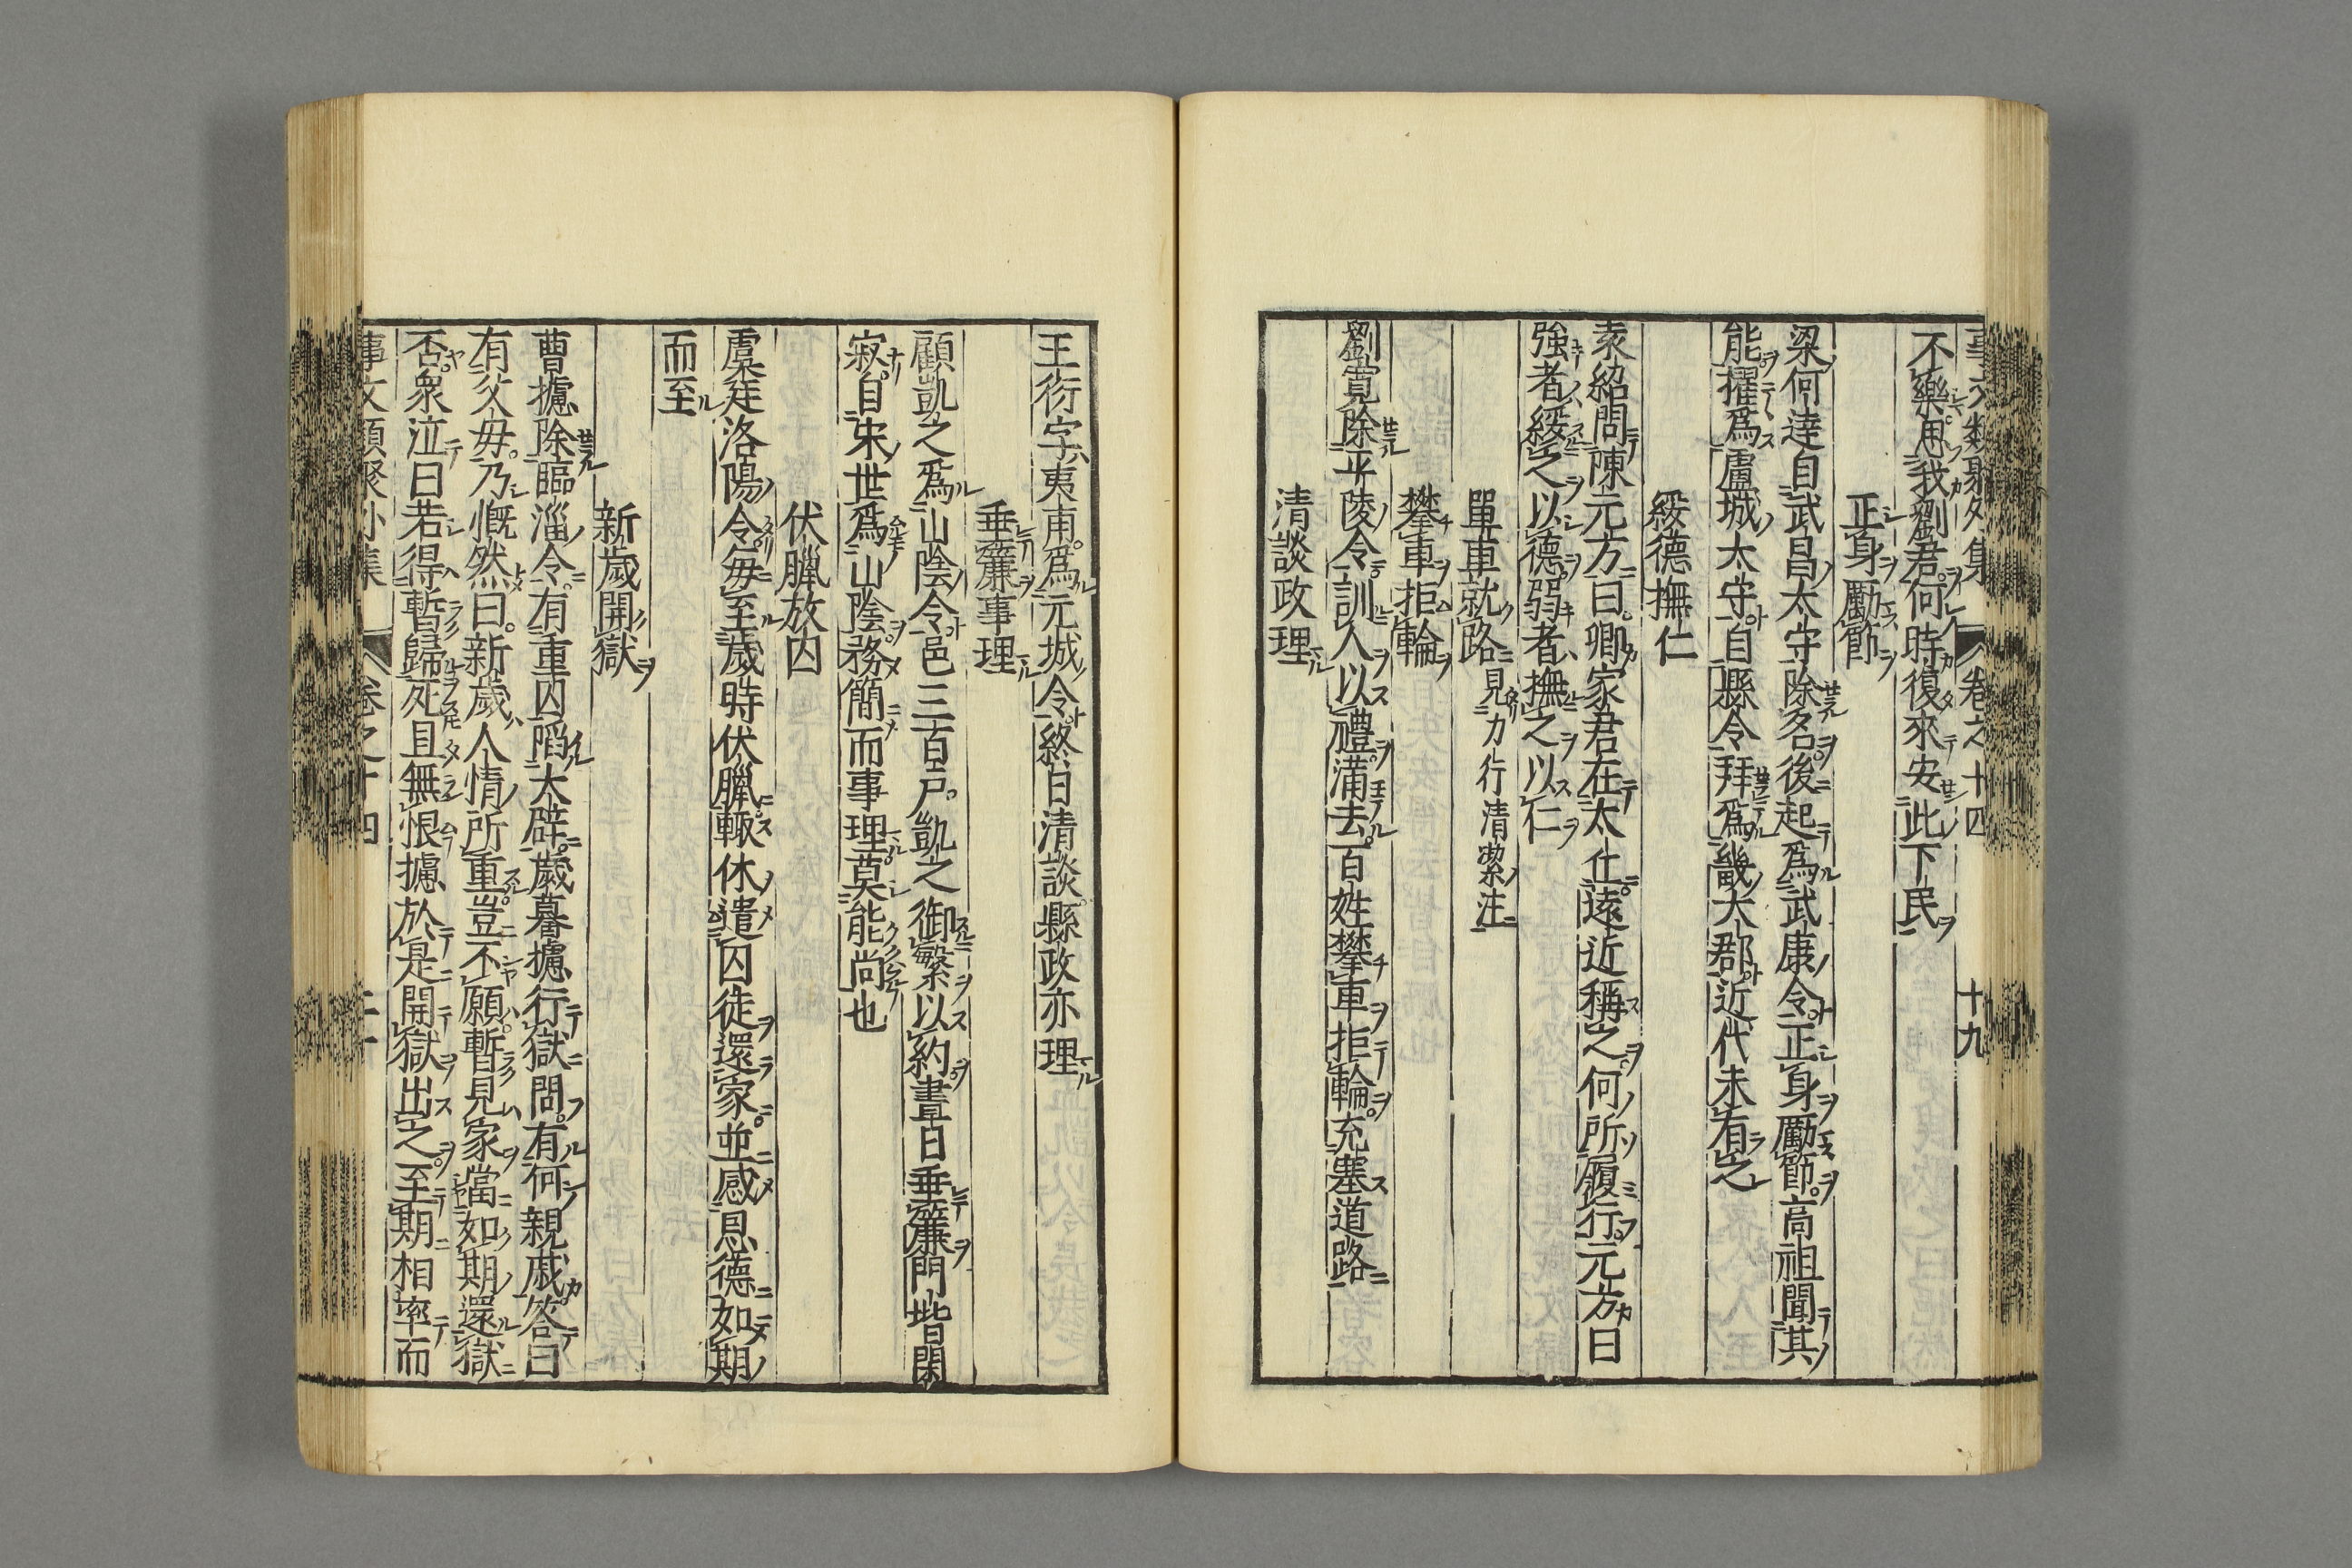 事文類聚外集 卷之十四 十九
不樂用我劉君何時復來安此下民
正身勵節
梁何逵自武昌太守除名後起爲武康令正身勵節高祖聞其
能擢爲盧城太守自縣令拜爲畿大郡近代未有之
綏德撫仁
袁紹問陳元方曰卿家君在太丘遠近稱之何所履行元方曰
強者綏之以德弱者撫之以仁
單車就路見力行清潔注
攀車拒輪
劉寬除平陵令訓人以禮滿去百姓攀車拒輪充塞道路
清談政理
王衍字夷甫爲元城令終日清談縣政亦理
垂簾事理
顧凱之爲山陰令邑三百戸凱之御繁以約晝日垂簾門堦閑
寂自宋世爲山陰務簡而事理莫能尚也
伏臘放囚
虞㝎洛陽令每至歲時伏臘輙休遣囚徒還家並感恩德如期
而至
新歲開獄
曹攄除臨淄令有重囚陷大辟歲暮攄行獄問有何親戚答曰
有父母乃慨然曰新歲人情所重豈不願暫見家當如期還獄
否衆泣曰若得暫歸死且無恨攄於是開獄出之至期相率而
事文類聚外集 卷之十四